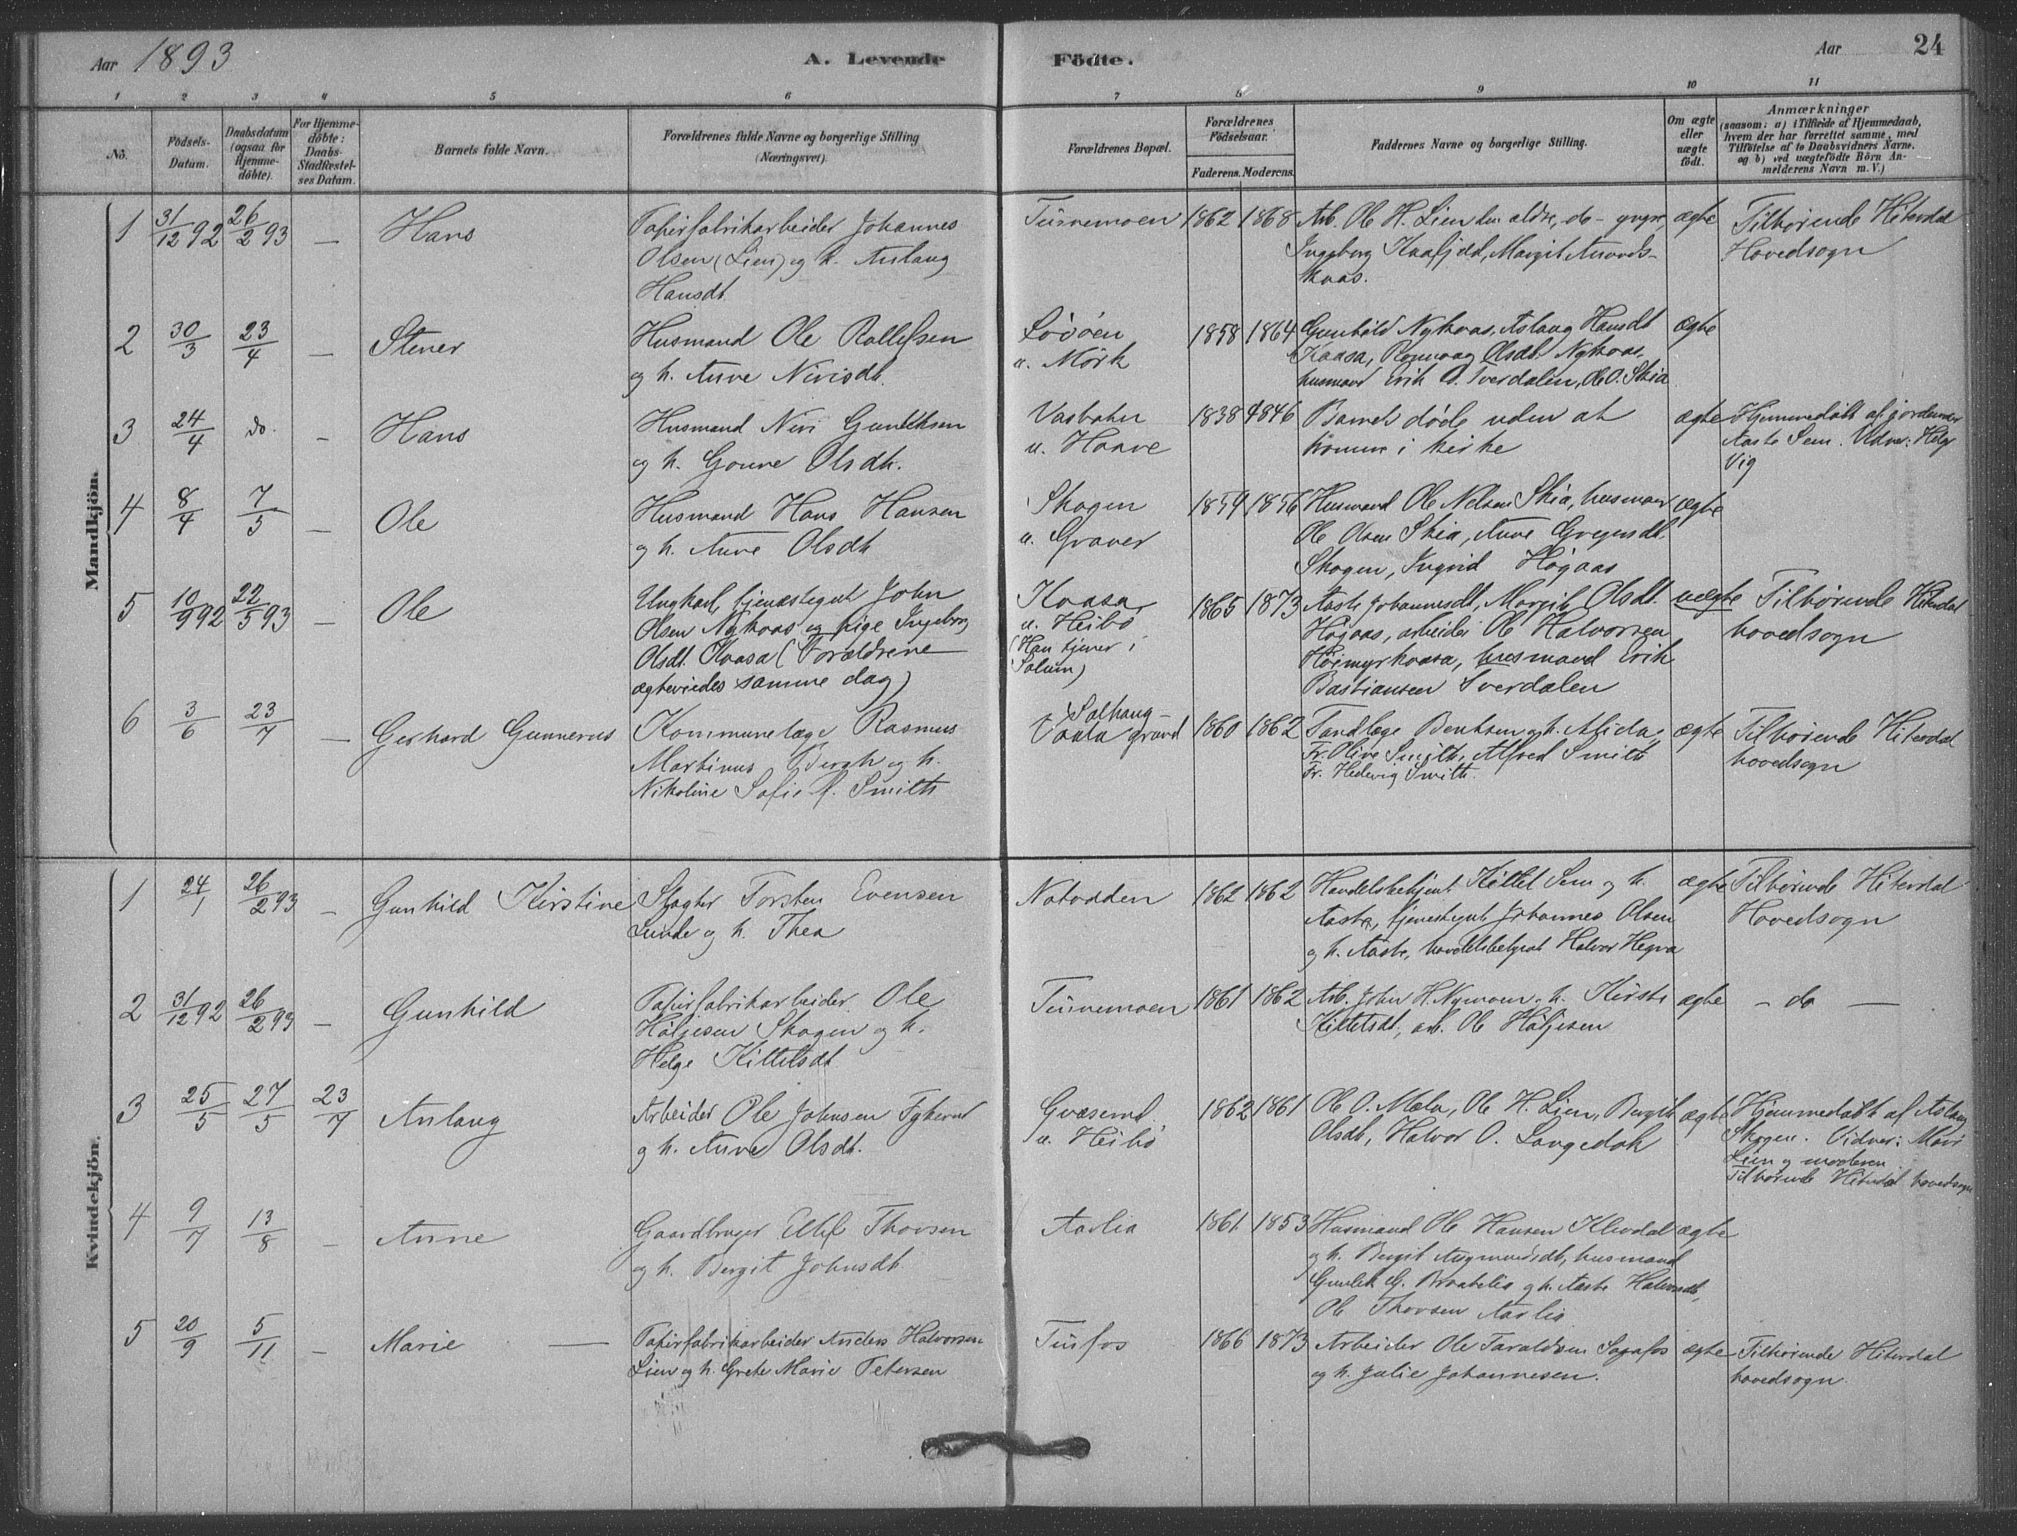 Aar 1893 A. Levende Födte. Aar 24
1 2 3 4 5 6 7 8 9 10 11
No.
Födsels-Datum.
Daabsdatum (ogsaa for Hjemme-döbte).
For Hjemme-döbte: Daabs-Stadfæstel-ses Datum.
Barnets fulde Navn.
Forældrenes fulde Navne og borgerlige Stilling
(Næringsvei).
Forældrenes Bopæl.
Forældrenes Födselsaar.
Faderens. Moderens.
Faddernes Navne og borgerlige Stilling.
Om ægte eller uægte födt.
Anmærkninger
(saasom: a) i Tilfælde af Hjemmedaab,
hvem der har forrettet samme, med
Tilföielse af to Daabsvidners Navne.
og b) ved uægtefödte Börn An-
melderens Navn m. V.)
Mandkjön.
1 31/12 92 26/2 93 — Hans
Papirfabrikarbeider Johannes
Olsen (Lien) og h. Aslaug
Hansdt.
Tinnemoen 1862 1868
Arb. Ole H. Lien den ældre, do - yngre,
Ingeborg Kaafjeld, Margit
kaas.
ægte
Tilhørende Hiterdal
Hovedsogn
2 30/3 23/4 — Stener
Husmand Ole Rollefsen
og h. Anne Nirisdt.
Løvøen
u. Mørk
1858 1864
Gunhild Nykaas, Aslaug Hansdt
Kaasa, Ronnaug Olsdt. Nykaas,
husmand Erik B. Sverdalen, Ole O. Skia
ægte
3 24/4 do. — Hans
Husmand Niri Gunleksen
og h. Gonne Olsdt.
Vasbotn
u. Haave
1838 1846
Barnet døde uden at
komme i kirke
ægte
Hjemmedøbt af jordemor
Aaste Sem. Vidner: Helge
Vig
4 8/4 7/5 — Ole
Husmand Hans Hansen
og h. Anne Olsdt.
Skogen
u. Graver
1859 1856
Husmand Ole Nelsen Skia, husmand
Ole Olsen Skia, Anne Gregersdt.
Skogen, Ingrid Høgaas
ægte
5 10/9 92 22/5 93 Ole
Ungkarl, tjenestegut John
Olsen Nykaas og pige Ingeborg
Olsdt. Kaasa (Forældrene
ægteviedes samme dag)
Kaasa
u. Heibø
(Han tjener i
Solum)
1865 1873
Aaste Johannesdt, Margit Olsdt.
Høgaas, arbeider Ole Halvorsen
Høimyrkaasa, husmand Erik
Bastiansen Sverdalen
uægte
Tilhørende Hiterdal
hovedsogn
6 3/6 23/7 — Gerhard Gunnerus
Kommunelæge Rasmus
Martinus Bergh og h.
Nikoline Sofie f. Smith
Solhaug -
Vaala grund
1860 1862
Tandlæge Bentsen og h. Alida,
Fr. Olive Smith, Alfred Smith
Fr. Hedvig Smith.
ægte
Tilhørende Hiterdal
hovedsogn
Kvindekjön.
1 24/1 26/2 93 — Gunhild Kirstine
Slagter Torsten Evensen
Lunde og h. Thea
Notodden 1862 1862
Handelsbetjent Kittel Sem og h.
Aasta, tjenestegut Johannes Olsen
og h. Aaste, handelsbetjent Halvor Hegna
ægte
Tilhørende Hiterdal
Hovedsogn
2 31/12 92 26/2 93 — Gunhild
Papirfabrikarbeider Ole
Høljesen Skogen og h.
Helge Kittelsdt.
Tinnemoen 1861 1862
Arb. John H. Nymoen, h. Kirsti
Kittelsdt, arb. Ole Høljesen
ægte — do —
3 25/5 27/5 23/7 Aslaug
Arbeider Ole Johnsen Tykerud
og h. Anne Olsdt.
Grasrud
u. Heibø
1862 1861
Ole O. Mæla, Ole H. Lien, Bergit
Olsdt, Halvor O. Langedok
ægte
Hjemmedøbt af Aslaug
Skogen. Vidner: Mari
Lien og moderen
Tilhørende Hiterdal hovedsogn
4 9/7 13/8 — Anne
Gaardbruger Ellef Thovsen
og h. Bergit Johnsdt.
Aaslia 1861 1853
Husmand Ole Hansen Klevdal
og h. Bergit Aagmundsdt, husmand
Gunlek G. Braatelia og h. Aaste Halvorsdt,
Ole Thovsen Aaslia
ægte
5 20/9 5/11 — Marie —
Papirfabrikarbeider Anders Halvorsen
Lien og h. Grete Marie Petersen
Tinfos 1866 1873
Arbeider Ole Taraldsen Sagafos
og h. Julie Johannesen.
ægte
Tilhørende Hiterdal
hovedsogn.